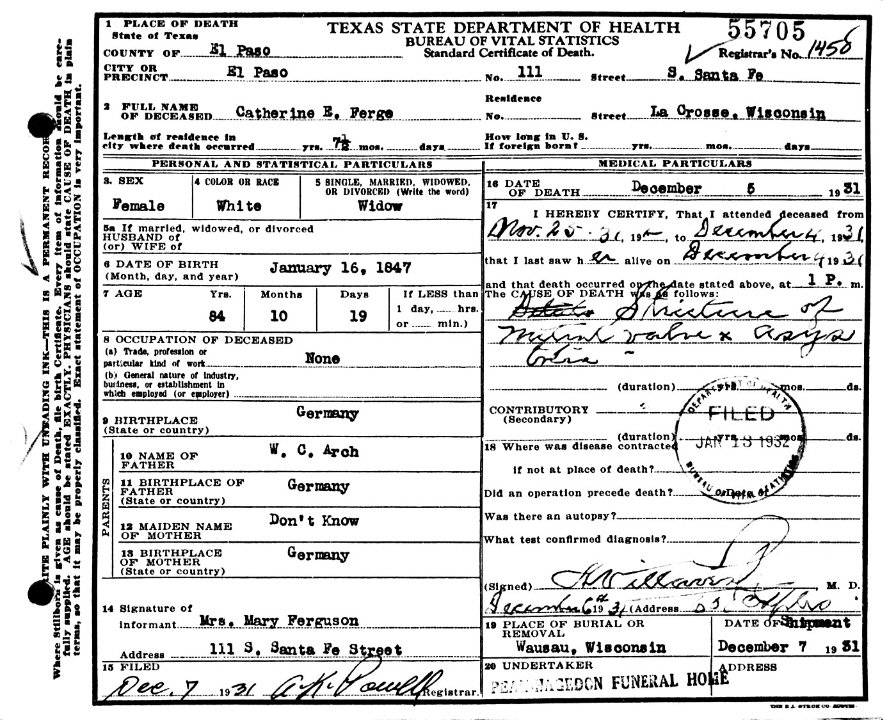 TEXAS STATE DEPARTMENT OF HEALTH
BUREAU OF VITAL STATISTICS
Standard Certificate of Death.
55705
Registrar's No. 1450
1 PLACE OF DEATH
State of Texas
COUNTY OF El Paso
CITY OR PRECINCT El Paso No. 111 Street S. Santa Fe
2 FULL NAME OF DECEASED Catherine E. Ferge
Residence No. Street La Crosse, Wisconsin
Length of residence in city where death occurred yrs. 7½ mos. days
How long in U. S. If foreign born? yrs. mos. days
PERSONAL AND STATISTICAL PARTICULARS
3. SEX Female
4 COLOR OR RACE White
5 SINGLE, MARRIED, WIDOWED, OR DIVORCED (Write the word) Widow
5a If married, widowed, or divorced
HUSBAND of
(or) WIFE of
6 DATE OF BIRTH
(Month, day, and year) January 16, 1847
7 AGE Yrs. Months Days If LESS than
84 10 19 1 day, hrs.
or min.)
8 OCCUPATION OF DECEASED
(a) Trade, profession or
particular kind of work None
(b) General nature of industry,
business, or establishment in
which employed (or employer)
9 BIRTHPLACE Germany
(State or country)
PARENTS
10 NAME OF FATHER W. C. Arch
11 BIRTHPLACE OF FATHER Germany
(State or country)
12 MAIDEN NAME OF MOTHER Don't Know
13 BIRTHPLACE OF MOTHER Germany
(State or country)
14 Signature of
Informant Mrs. Mary Ferguson
Address 111 S. Santa Fe Street
15 FILED
Dec. 7 1931 A.K. Powell Registrar.
MEDICAL PARTICULARS
16 DATE OF DEATH December 5 1931
17
I HEREBY CERTIFY, That I attended deceased from
Nov. 25 - 31, 19, to December 4, 1931,
that I last saw her alive on December 4 1931
and that death occurred on the date stated above, at 1 P. m.
The CAUSE OF DEATH was as follows:
Stricture of
Mitral valve &
(duration) yrs. mos. ds.
CONTRIBUTORY
(Secondary)
(duration) yrs. mos. ds.
DEPARTMENT OF HEALTH
FILED
JAN 13 1932
BUREAU OF VITAL STATISTICS
18 Where was disease contracted
if not at place of death?
Did an operation precede death? Date of
Was there an autopsy?
What test confirmed diagnosis?
(Signed) M. D.
December 6th 1931 (Address
19 PLACE OF BURIAL OR REMOVAL
Wausau, Wisconsin
DATE OF Shipment
December 7 1931
20 UNDERTAKER
FUNERAL HOME
ADDRESS
WRITE PLAINLY WITH UNFADING INK—THIS IS A PERMANENT RECORD
Where Stillborn is given as cause of Death, file birth Certificate. Every item of information should be carefully supplied. AGE should be stated EXACTLY. PHYSICIANS should state CAUSE OF DEATH in plain terms, so that it may be properly classified. Exact statement of OCCUPATION is very important.